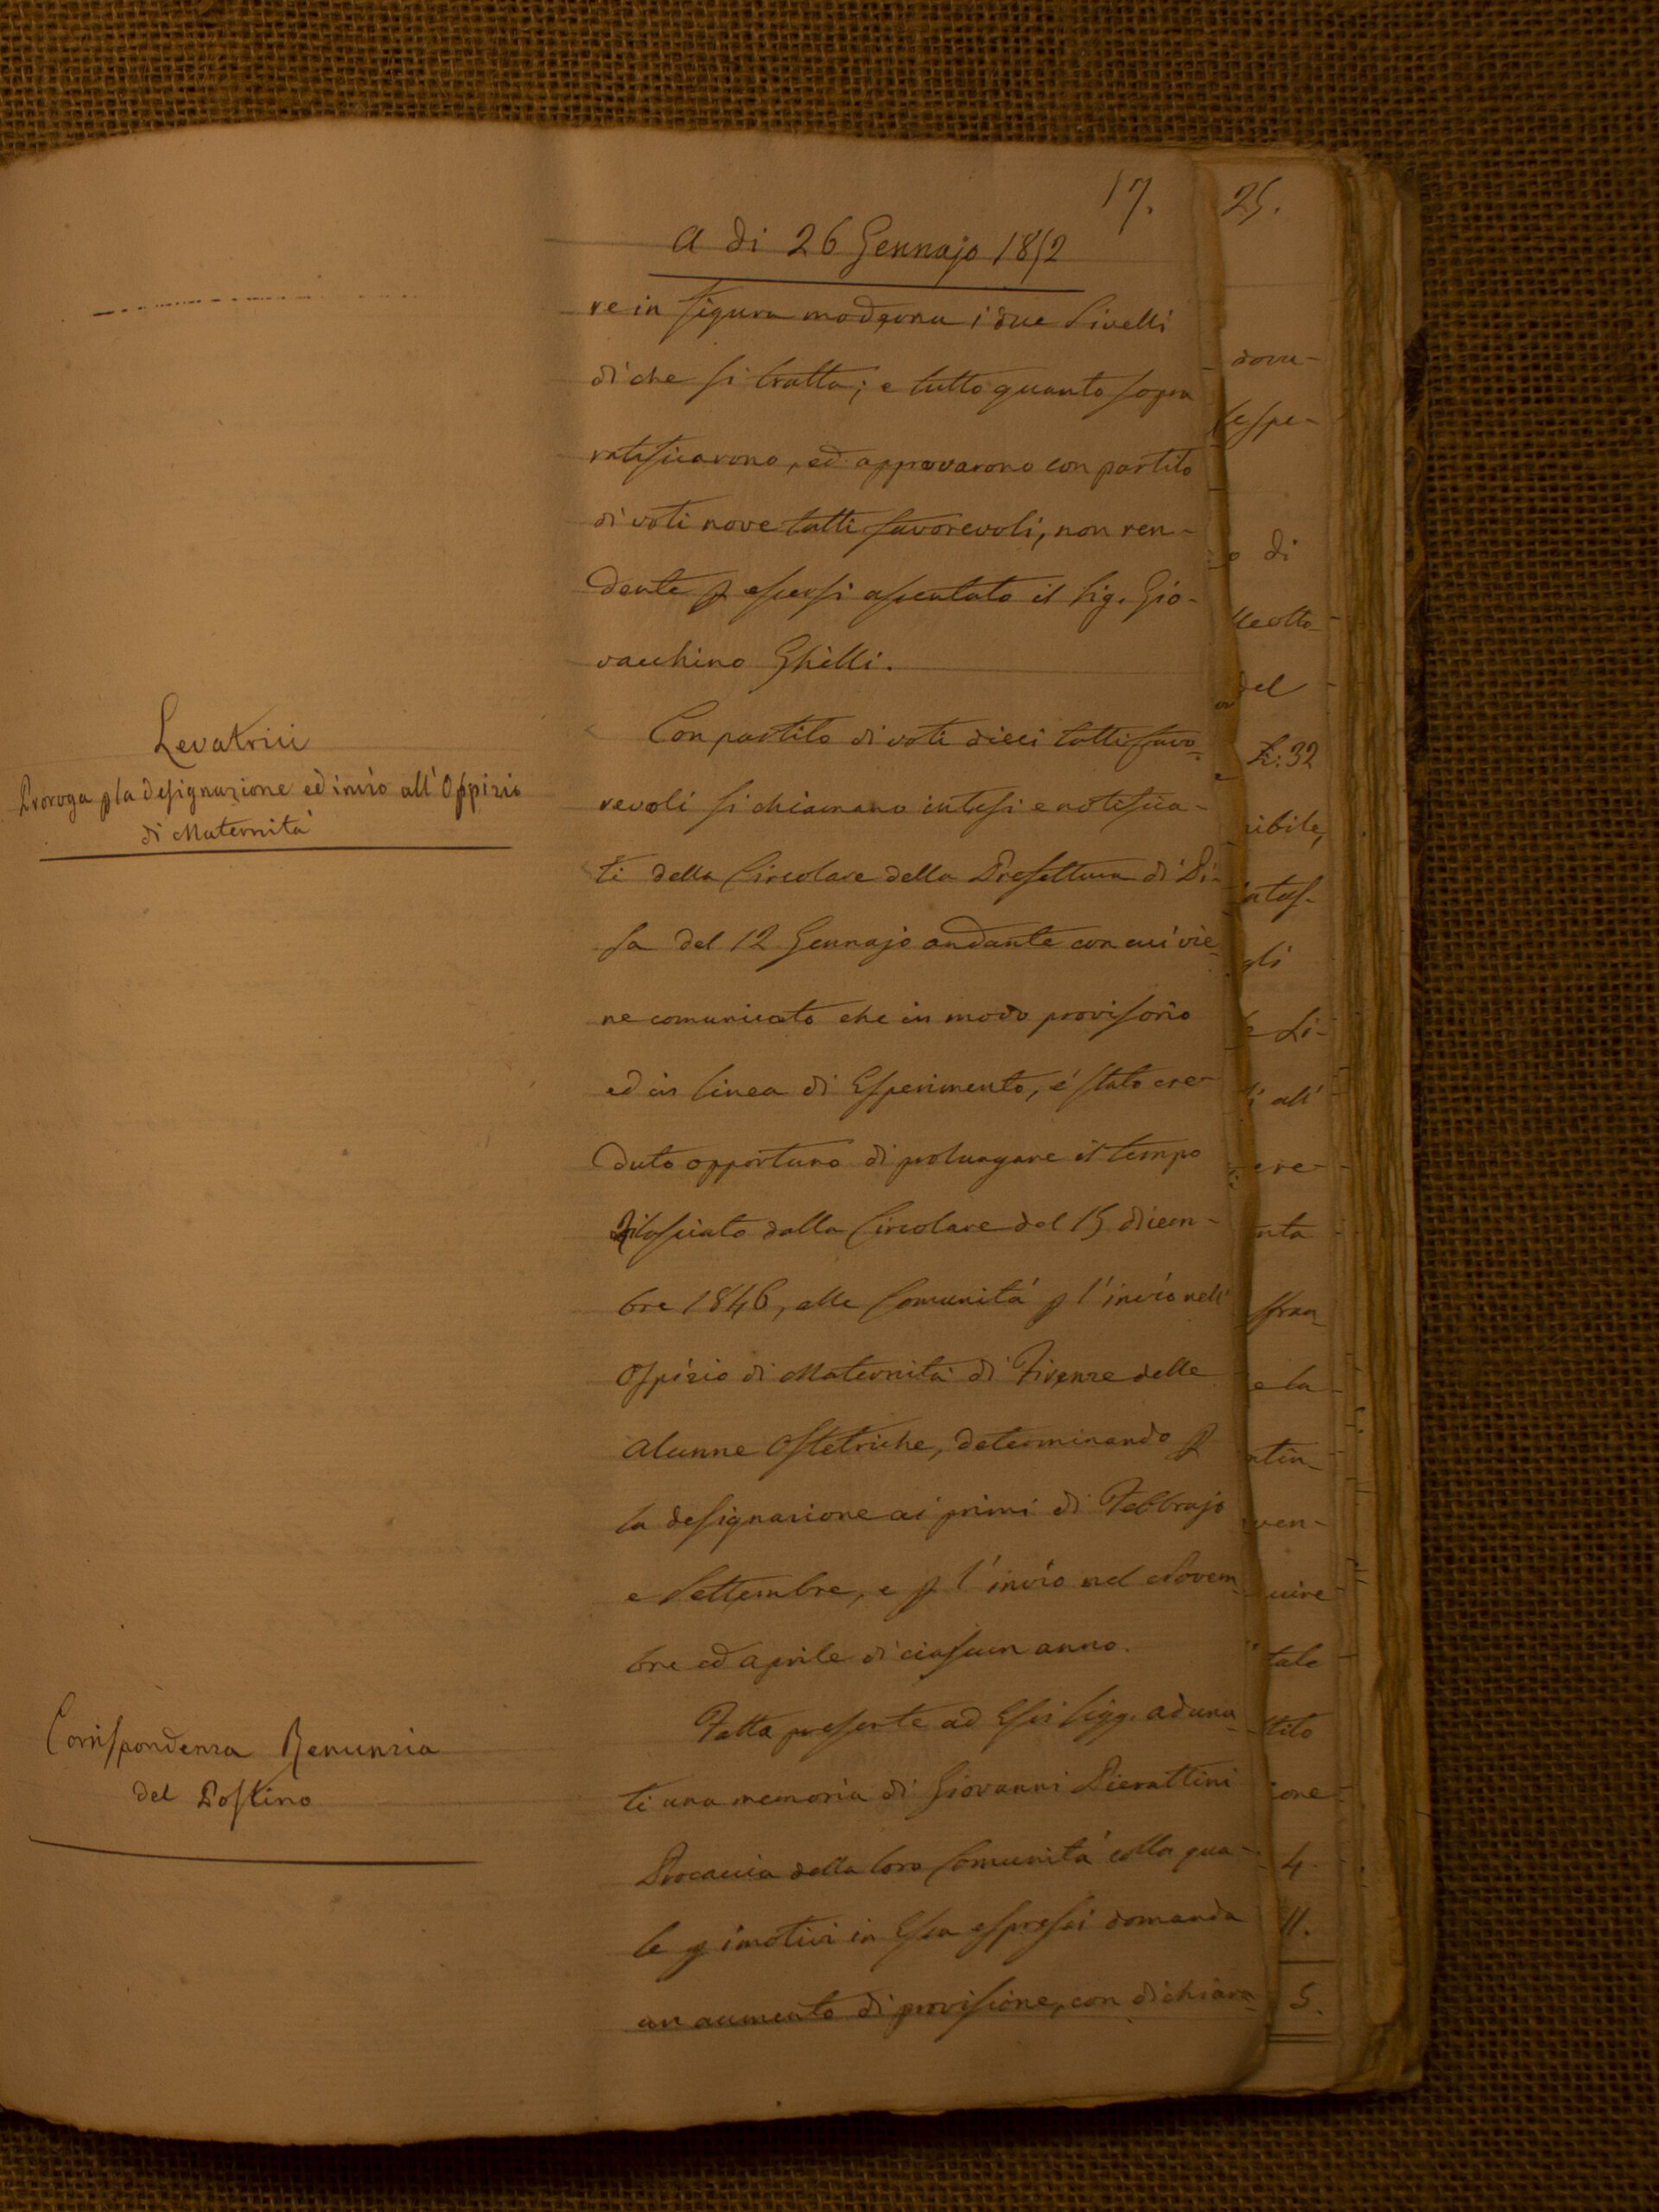 17.
A di 26 Gennajo 1852
re in figura moderna i due Livelli
di che si tratta; e tutto quanto sopra
ratificarono, ed approvarono con partito
di voti nove tutti favorevoli, non ren-
dente p essersi assentato il Sig. Gio-
vacchino Ghilli.
Levatrici
Proroga p la designazione ed invio all'Ospizio
di Maternità
Con partito di voti dieci tutti favo-
revoli si chiamano intesi e notifica-
ti della Circolare della Prefettura di Pi-
sa del 12 Gennajo andante con cui vie-
ne comunicato che in modo provisorio
ed in linea di Esperimento, é stato cre-
duto opportuno di prolungare il tempo
rilasciato dalla Circolare del 15 dicem-
bre 1846, alle Comunitá p l'invio nell'
Ospizio di Maternitá di Firenze delle
Alunne Ostetriche, determinando p
la designazione ai primi di Febbrajo
e Settembre, e p l'invio nel Novem-
bre ed Aprile di ciascun anno.
Corrispondenza Renunzia
del Postino
Fatta presente ad Essi Sigg. aduna-
ti una memoria di Giovanni Pierattini
Procaccia della loro Comunitá colla qua-
le p i motivi in Essa espressi domanda
un aumento di provisione, con dichiara-
25.
dovu-
o di
del
32
gli
e Li-
all'
ere-
nta
e la
ven-
tale
4.
11.
5.